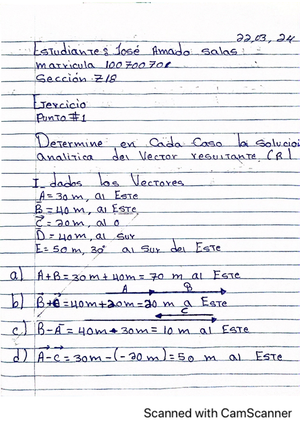 22,03, 24
Estudiante: José Amado Salas
matricula 10070070
Sección Z18
Ejercicio
Punto #1
Determine en Cada Caso la Solucio
analitica del Vector resultante (R).
I- dados los Vectores
A=30m, al Este
B=40m, al Este,
C=20m, al O
D=40m, al Sur
E=50m, 30° al Sur del Este
a) A+B=30m+40m=70 m al Este
A B
b) B+C=40m+20m-20 m a Este
C
c) B-A=40m-30m=10 m al Este
d) A-C=30m-(-20m)=50 m al Este
Scanned with CamScanner